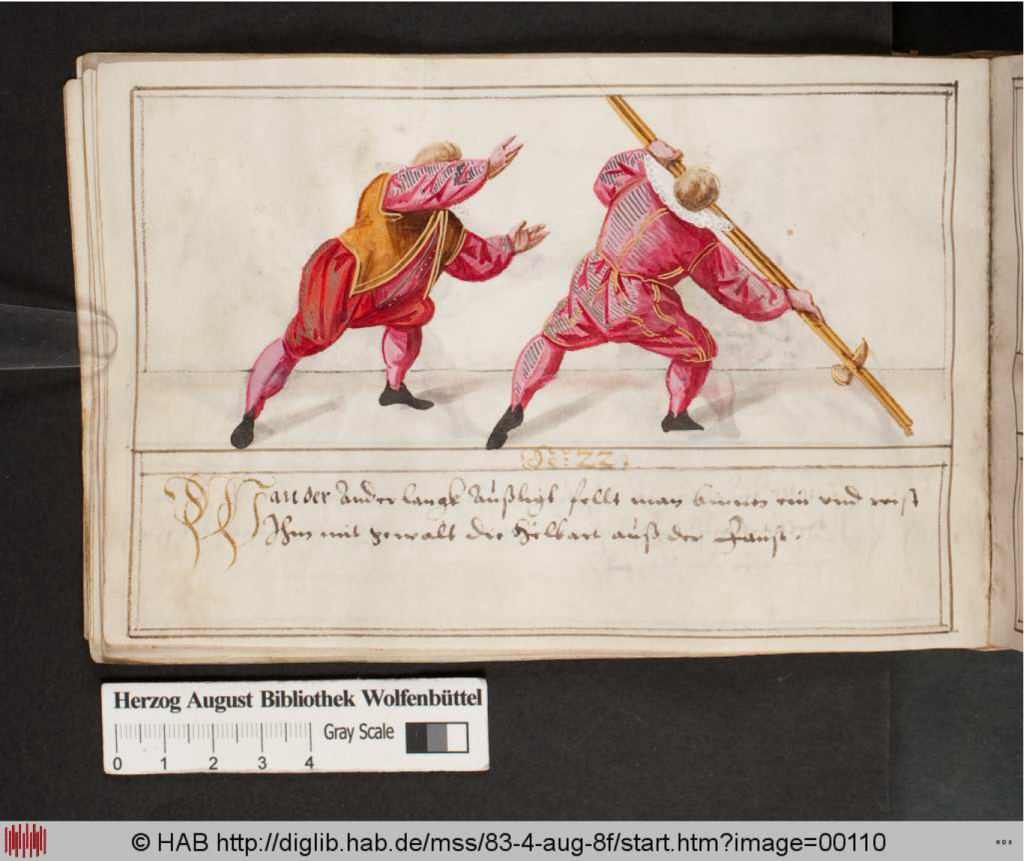 No: 22.
Wan der Ander langk außligt fellt man bunten ein vnd reist
Ihm mit gewalt die Helbart auß der Faust.
Herzog August Bibliothek Wolfenbüttel
0 1 2 3 4 Gray Scale
© HAB http://diglib.hab.de/mss/83-4-aug-8f/start.htm?image=00110